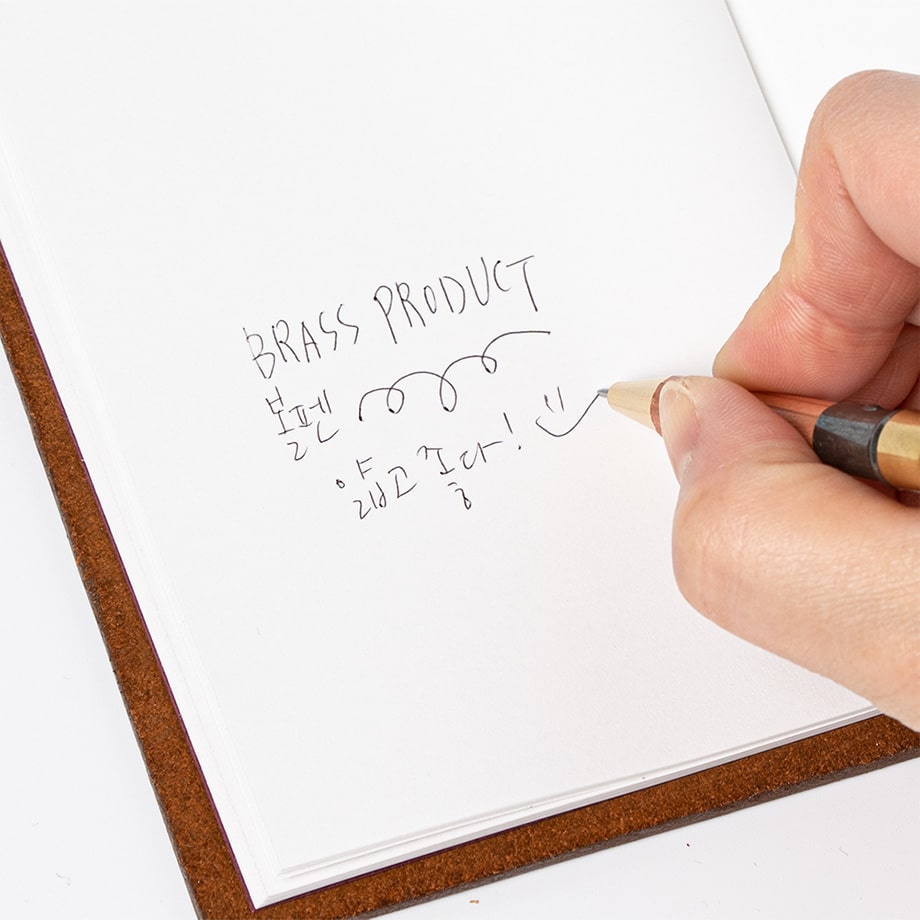 BRASS PRODUCT
볼펜
얇고 좋다!